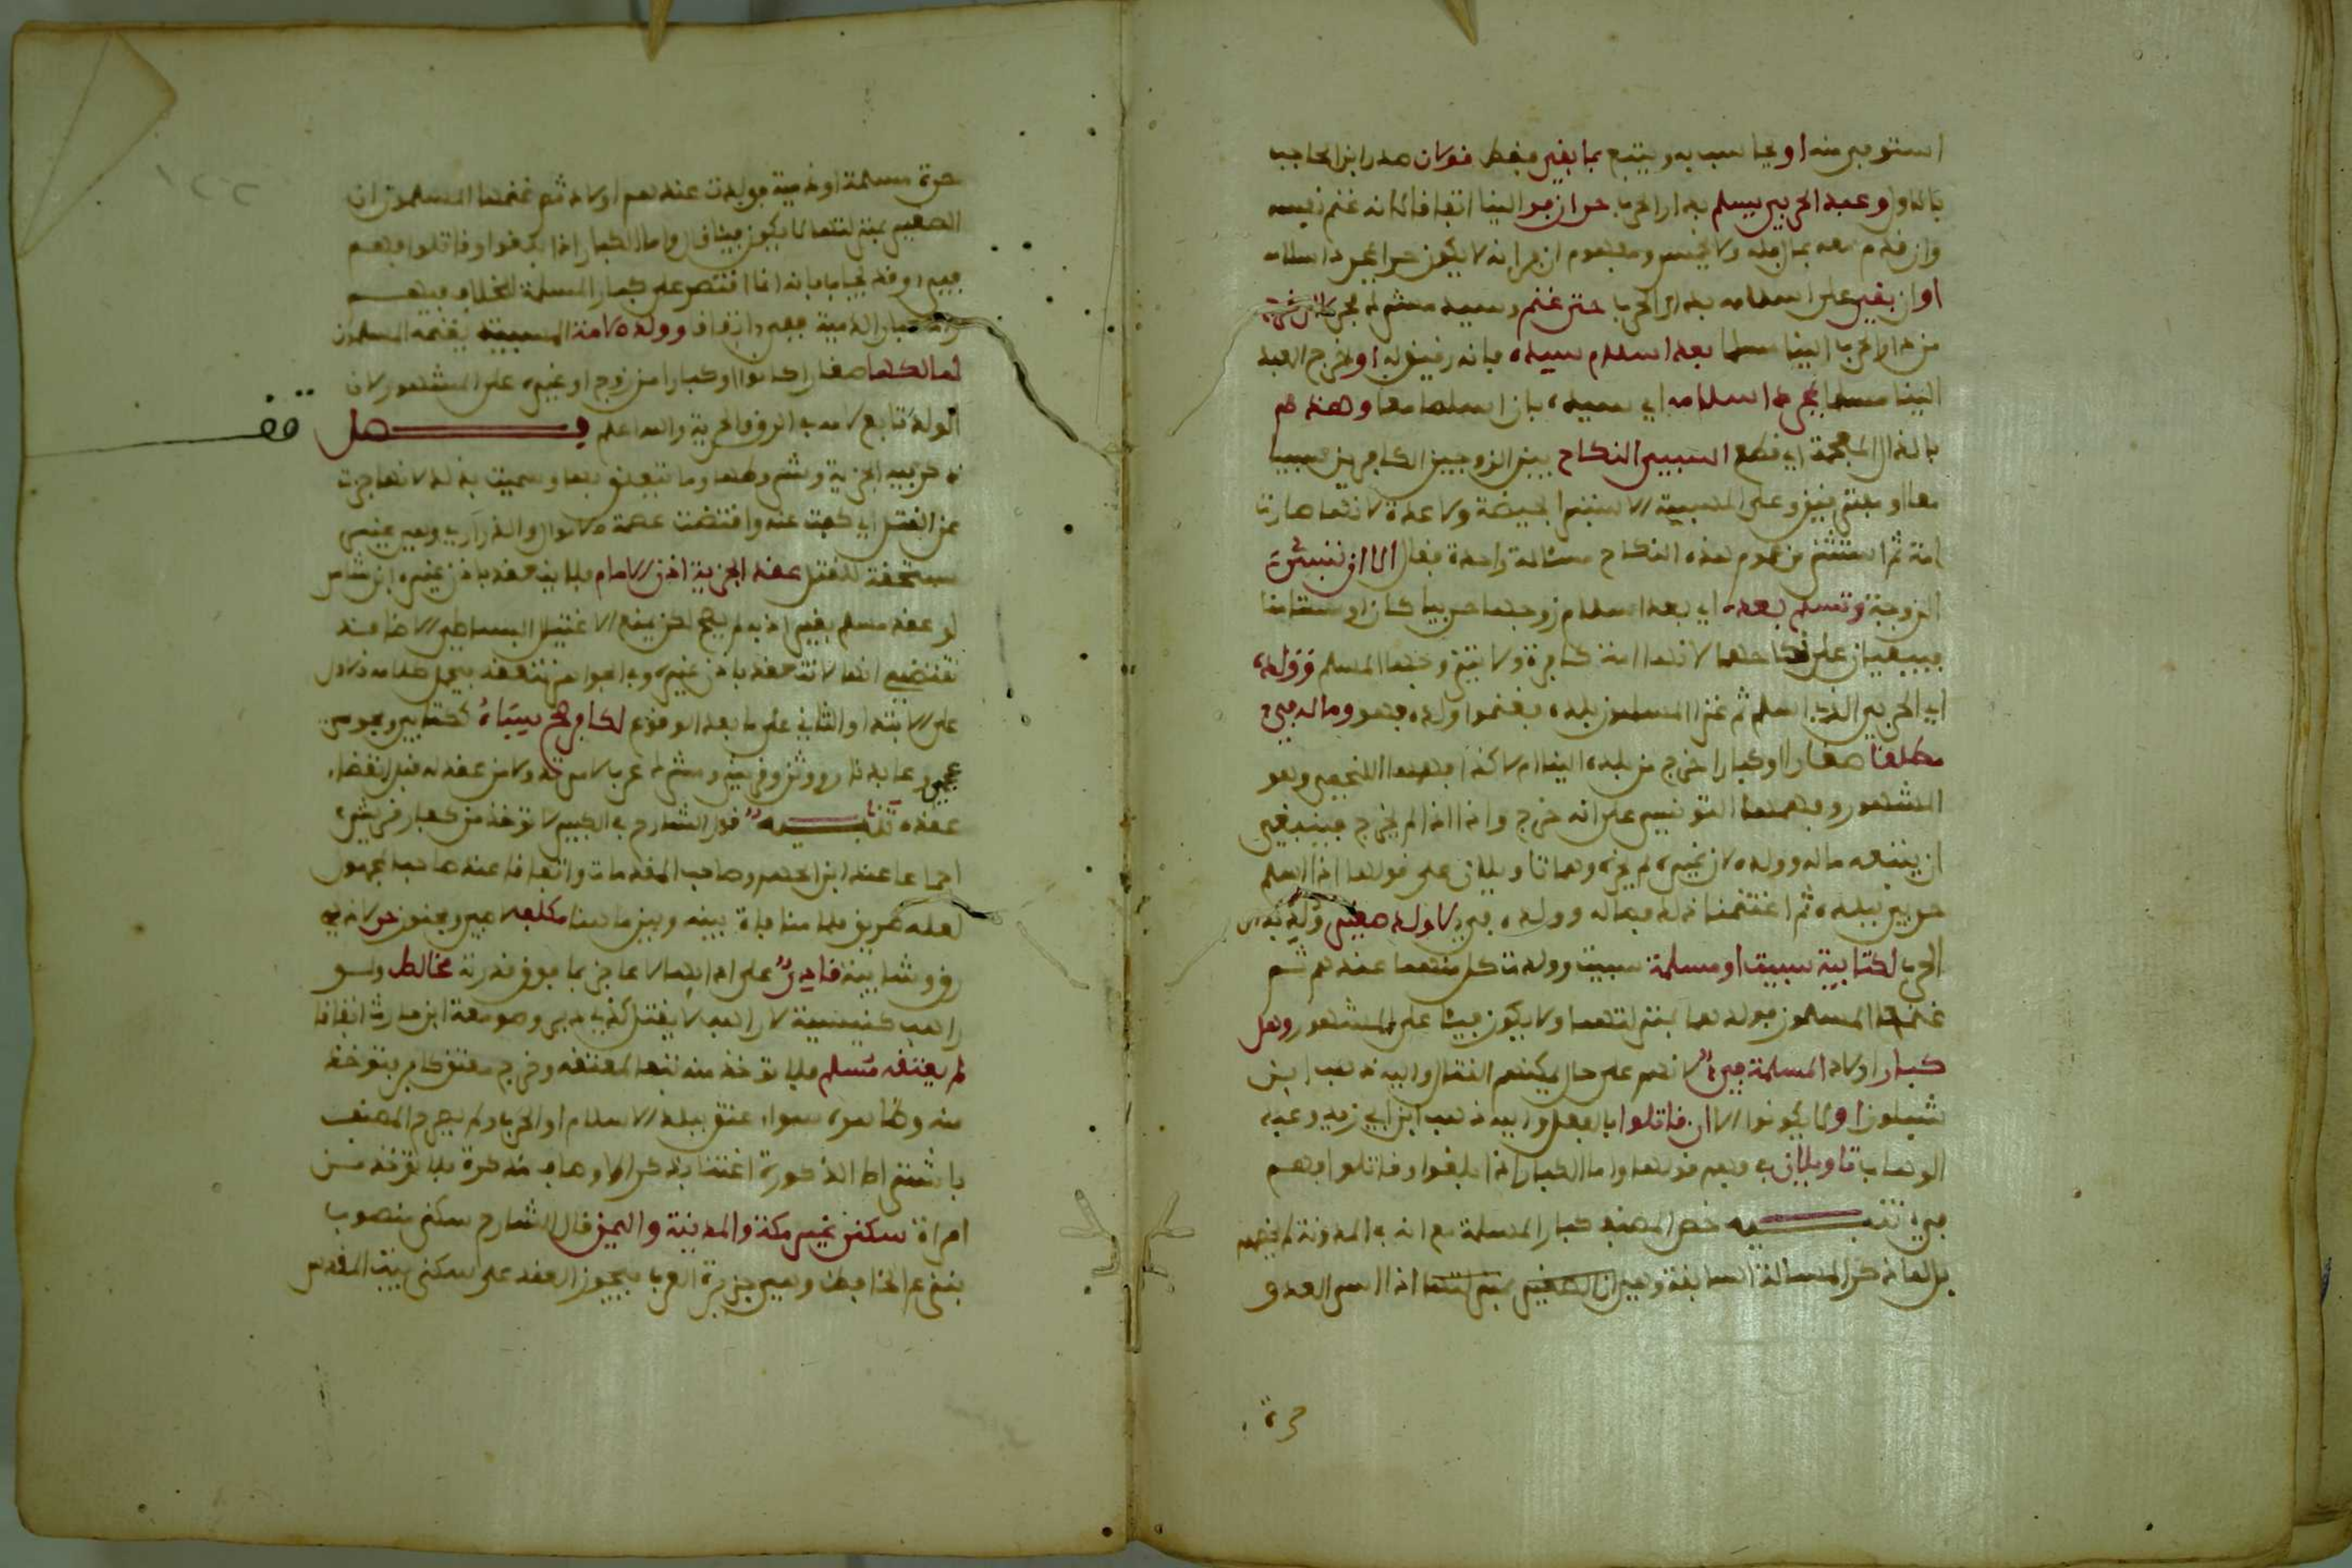 استوفي منه او يحاسب به ويتبع بما بقي فقط قولان صدر ابن الحاجب
بالاول وعبد الحربي يسلم بدار الحرب حر ان فر الينا اتفاقا لانه غنم نفسه
وان قدم معه بمال فله ولا يخمس ومفهوم ان فر انه لا يكون حرا بمجرد اسلامه
او ان بقي على اسلامه بدار الحرب حتى غنم وسيده مشرك لا ان خرج
من دار الحرب الينا مسلما بعد اسلام سيده فانه رقيق له او خرج العبد
الينا مسلما بمجرد اسلامه اي سيده بان اسلما معا وهدم
بالدال المهملة اي قطع السبي النكاح بين الزوجين الكافرين سبيا
معا او مفترقين وعلى المسبية الاستبرا بحيضة ولا عدة لانها صارت
امة ثم استثنى من عموم هدم النكاح مسئلة واحدة فقال الا ان تسبى
الزوجة وتسلم بعده اي بعد اسلام زوجها حربيا كان او مستامنا
فيبقيان على نكاحهما لانها امة كتابية ولا يتزوجها المسلم وولده
اي الحربي الذي اسلم ثم غزا المسلمون بلده فغنموا ولده فهو وماله فيء
مطلقا صغارا او كبارا خرج من بلده الينا ام لا كذا فهمها اللخمي وهو
المشهور وفهمها التونسي على انه خرج واما اذا لم يخرج فينبغي
ان يتبعه ماله وولده لان غيره لم يحزه وهما تاويلان على قولها اذا اسلم
حربي ببلده ثم اغتنمنا تلك فماله وولده فيء لا ولد صغير ولد بدار
الحرب لكتابية سبيت او مسلمة سبيت وولدت كل منهما عندهم ثم
غنمها المسلمون فولدهما بمنزلتهما ولا يكون فيئا على المشهور وهل
كبار اولاد المسلمة فيء لانهم على حال يمكنهم القتال واليه ذهب ابن
شبلون او لا يكونوا الا ان قاتلوا بالفعل واليه ذهب ابن ابي زيد وعبد
الوهاب تاويلان في فهم قولها واما الكبار اذا بلغوا وقاتلوا فهم
فيء تنبيه خص المصنف كبار المسلمة مع انه في المدونة لم يخصهم
بل لما ذكر المسالة السابقة وهي ان الصغير بمنزلتها اذا اسر العدو
حرة
حرة مسلمة او ذمية فولدت عندهم اولاد ثم غنمها المسلمون ان
الصغير بمنزلتها لا يكون فيئا قال واما الكبار اذا بلغوا وقاتلوا فهم
فيء وقد يجاب بانه انما اقتصر على كبار المسلمة للخلاف فيهم
واما كبار الذمية ففيء باتفاق وولد الامة المسبية يغنمه المسلمون
لمالكها صغارا كانوا او كبارا من زوج او غيره على المشهور لان
الولد تابع لامه في الرق والحرية والله اعلم فصل
ذكر فيه الجزية وشروطها وما يتعلق بها وسميت بذلك لانها جزت
عن القتل اي كفت عنه واقتضت عصمة الاموال والذراري وهي عينى
مستحقة للقتل عقد الجزية اذن الامام فلا ينعقد باذن غيره ابن شاس
لو عقد مسلم بغير اذنه لم يصح لكن يمنع الاغتيال البساطي الاضافة
تقتضي انها لا تنعقد باذن غيره وفي الجواهر تنعقد فيحمل كلامه ذلك الاول
على الابتدا والثاني على ما بعد الوقوع لكافر صح سباه كتابي ومجوسي
عجمي وعابد نار ووثن وقريش ومشرك عرب لا مرتد ولا من عقد له قبل انقضاء
عقده تنبيه قول الشارح في الكبير لا تؤخذ من كفار قريش
اجماعا عند ابن الجهم وصاحب المقدمات واتفاقا عند صاحب المجهول
لعله طريق فلا منافاة بينه وبين ما هنا مكلف لا صبي ومجنون حر لا ذي
رق وشايبته قادر على ادائها لا عاجز بما فوق قدرته مخالط ولو
راهب كنيسة لا راهب لا يقتل كذي دير وصومعة ابن حارث اتفاقا
لم يعتقه مسلم فلا تؤخذ منه تبعا لمعتقه وخرج معتق كافر فتؤخذ
منه وظاهره سواء عتق ببلد الاسلام او الحرب ولم يصرح المصنف
باشتراط الذكورة اغتنا بذكر الاوصاف مذكرة فلا تؤخذ من
امراة سكنى غير مكة والمدينة واليمن قال الشارح سكنى منصوب
بنزع الخافض وهي جزيرة العرب فيجوز العقد على سكنى بيت المقدس